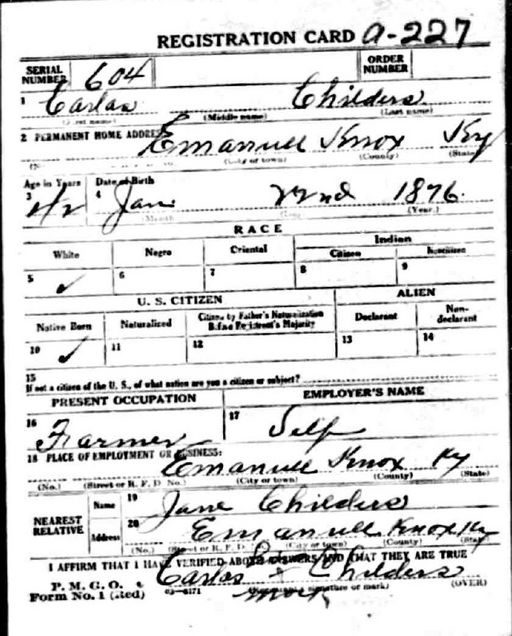 REGISTRATION CARD a-227
SERIAL NUMBER 604 ORDER NUMBER
1 Carlas Childers
(First name) (Middle name) (Last name)
2 PERMANENT HOME ADDRESS Emanuel Knox Ky
(City or town) (County) (State)
Age in Years Date of Birth
3 42 4 Jan 22nd 1876.
(Month) (Day) (Year.)
RACE
White Negro Oriental Indian
Citizen Noncitizen
5 ✓ 6 7 8 9
U. S. CITIZEN ALIEN
Native Born Naturalized Citizen by Father's Naturalization Before Registrant's Majority Declarant Non-declarant
10 ✓ 11 12 13 14
15
If not a citizen of the U. S., of what nation are you a citizen or subject?
PRESENT OCCUPATION EMPLOYER'S NAME
16 Farmer 17 Self
18 PLACE OF EMPLOYMENT OR BUSINESS:
Emanuel Knox Ky
(No.) (Street or R. F. D. No.) (City or town) (County) (State)
NEAREST RELATIVE Name 19 Jane Childers
Address 20 Emanuel Knox Ky
(No.) (Street or R. F. D. (City or town) (County) (State)
I AFFIRM THAT I HAVE VERIFIED ABOVE ANSWERS AND THAT THEY ARE TRUE
Carlas x Childers
P. M. G. O.
Form No. 1 (Red) 03-6171 mark signature or mark) (OVER)